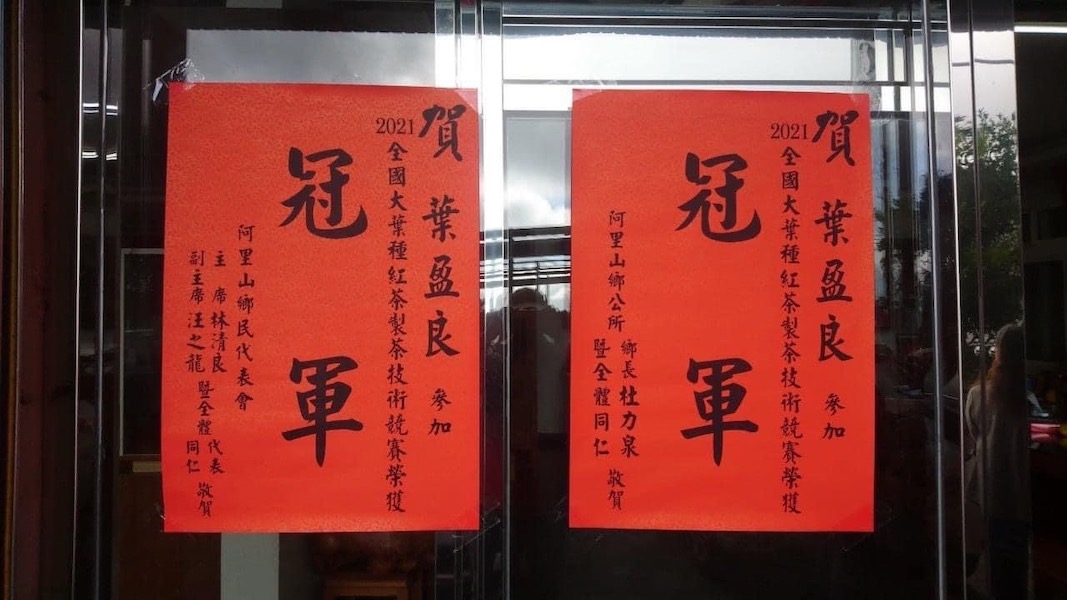 賀 葉盈良 參加
2021全國大葉種紅茶製茶技術競賽榮獲
冠軍
阿里山鄉公所 鄉長杜力泉 暨全體同仁 敬賀
賀 葉盈良 參加
2021全國大葉種紅茶製茶技術競賽榮獲
冠軍
阿里山鄉民代表會
主席林清良
副主席汪之龍
暨全體代表同仁 敬賀